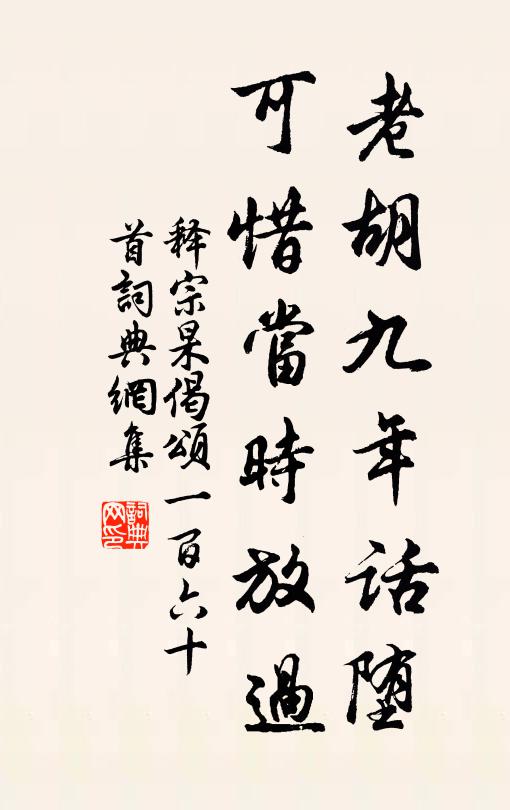 老胡九年话堕
可惜當時放過
释宗杲偈頌一百六十
首詞典網集
詞典
网印